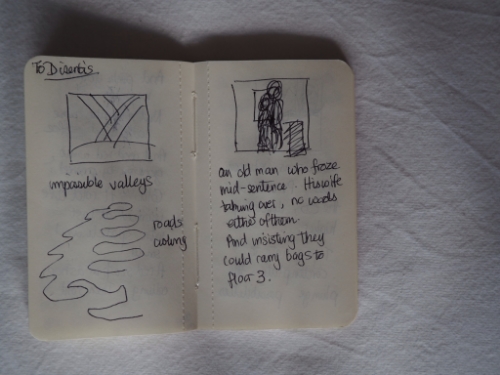 To Disentis
impossible valleys
roads
coiling
an old man who froze
mid-sentence. His wife
taking over, no words
either of them.
And insisting they
could carry bags to
floor 3.